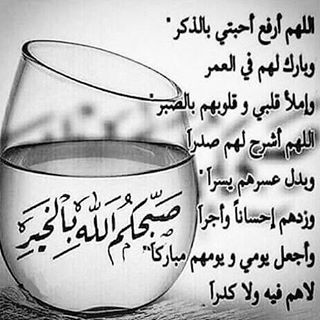 اللهم أرفع أحبتي بالذكر"
وبارك لهم في العمر
وإملأ قلبي و قلوبهم بالصبر"
اللهم أشرح لهم صدرا
وبدل عسرهم يسرا"
وزدهم إحساناً وأجرا
وأجعل يومي و يومهم مباركا"
لاهم فيه ولا كدرا
صبحكم الله بالخير